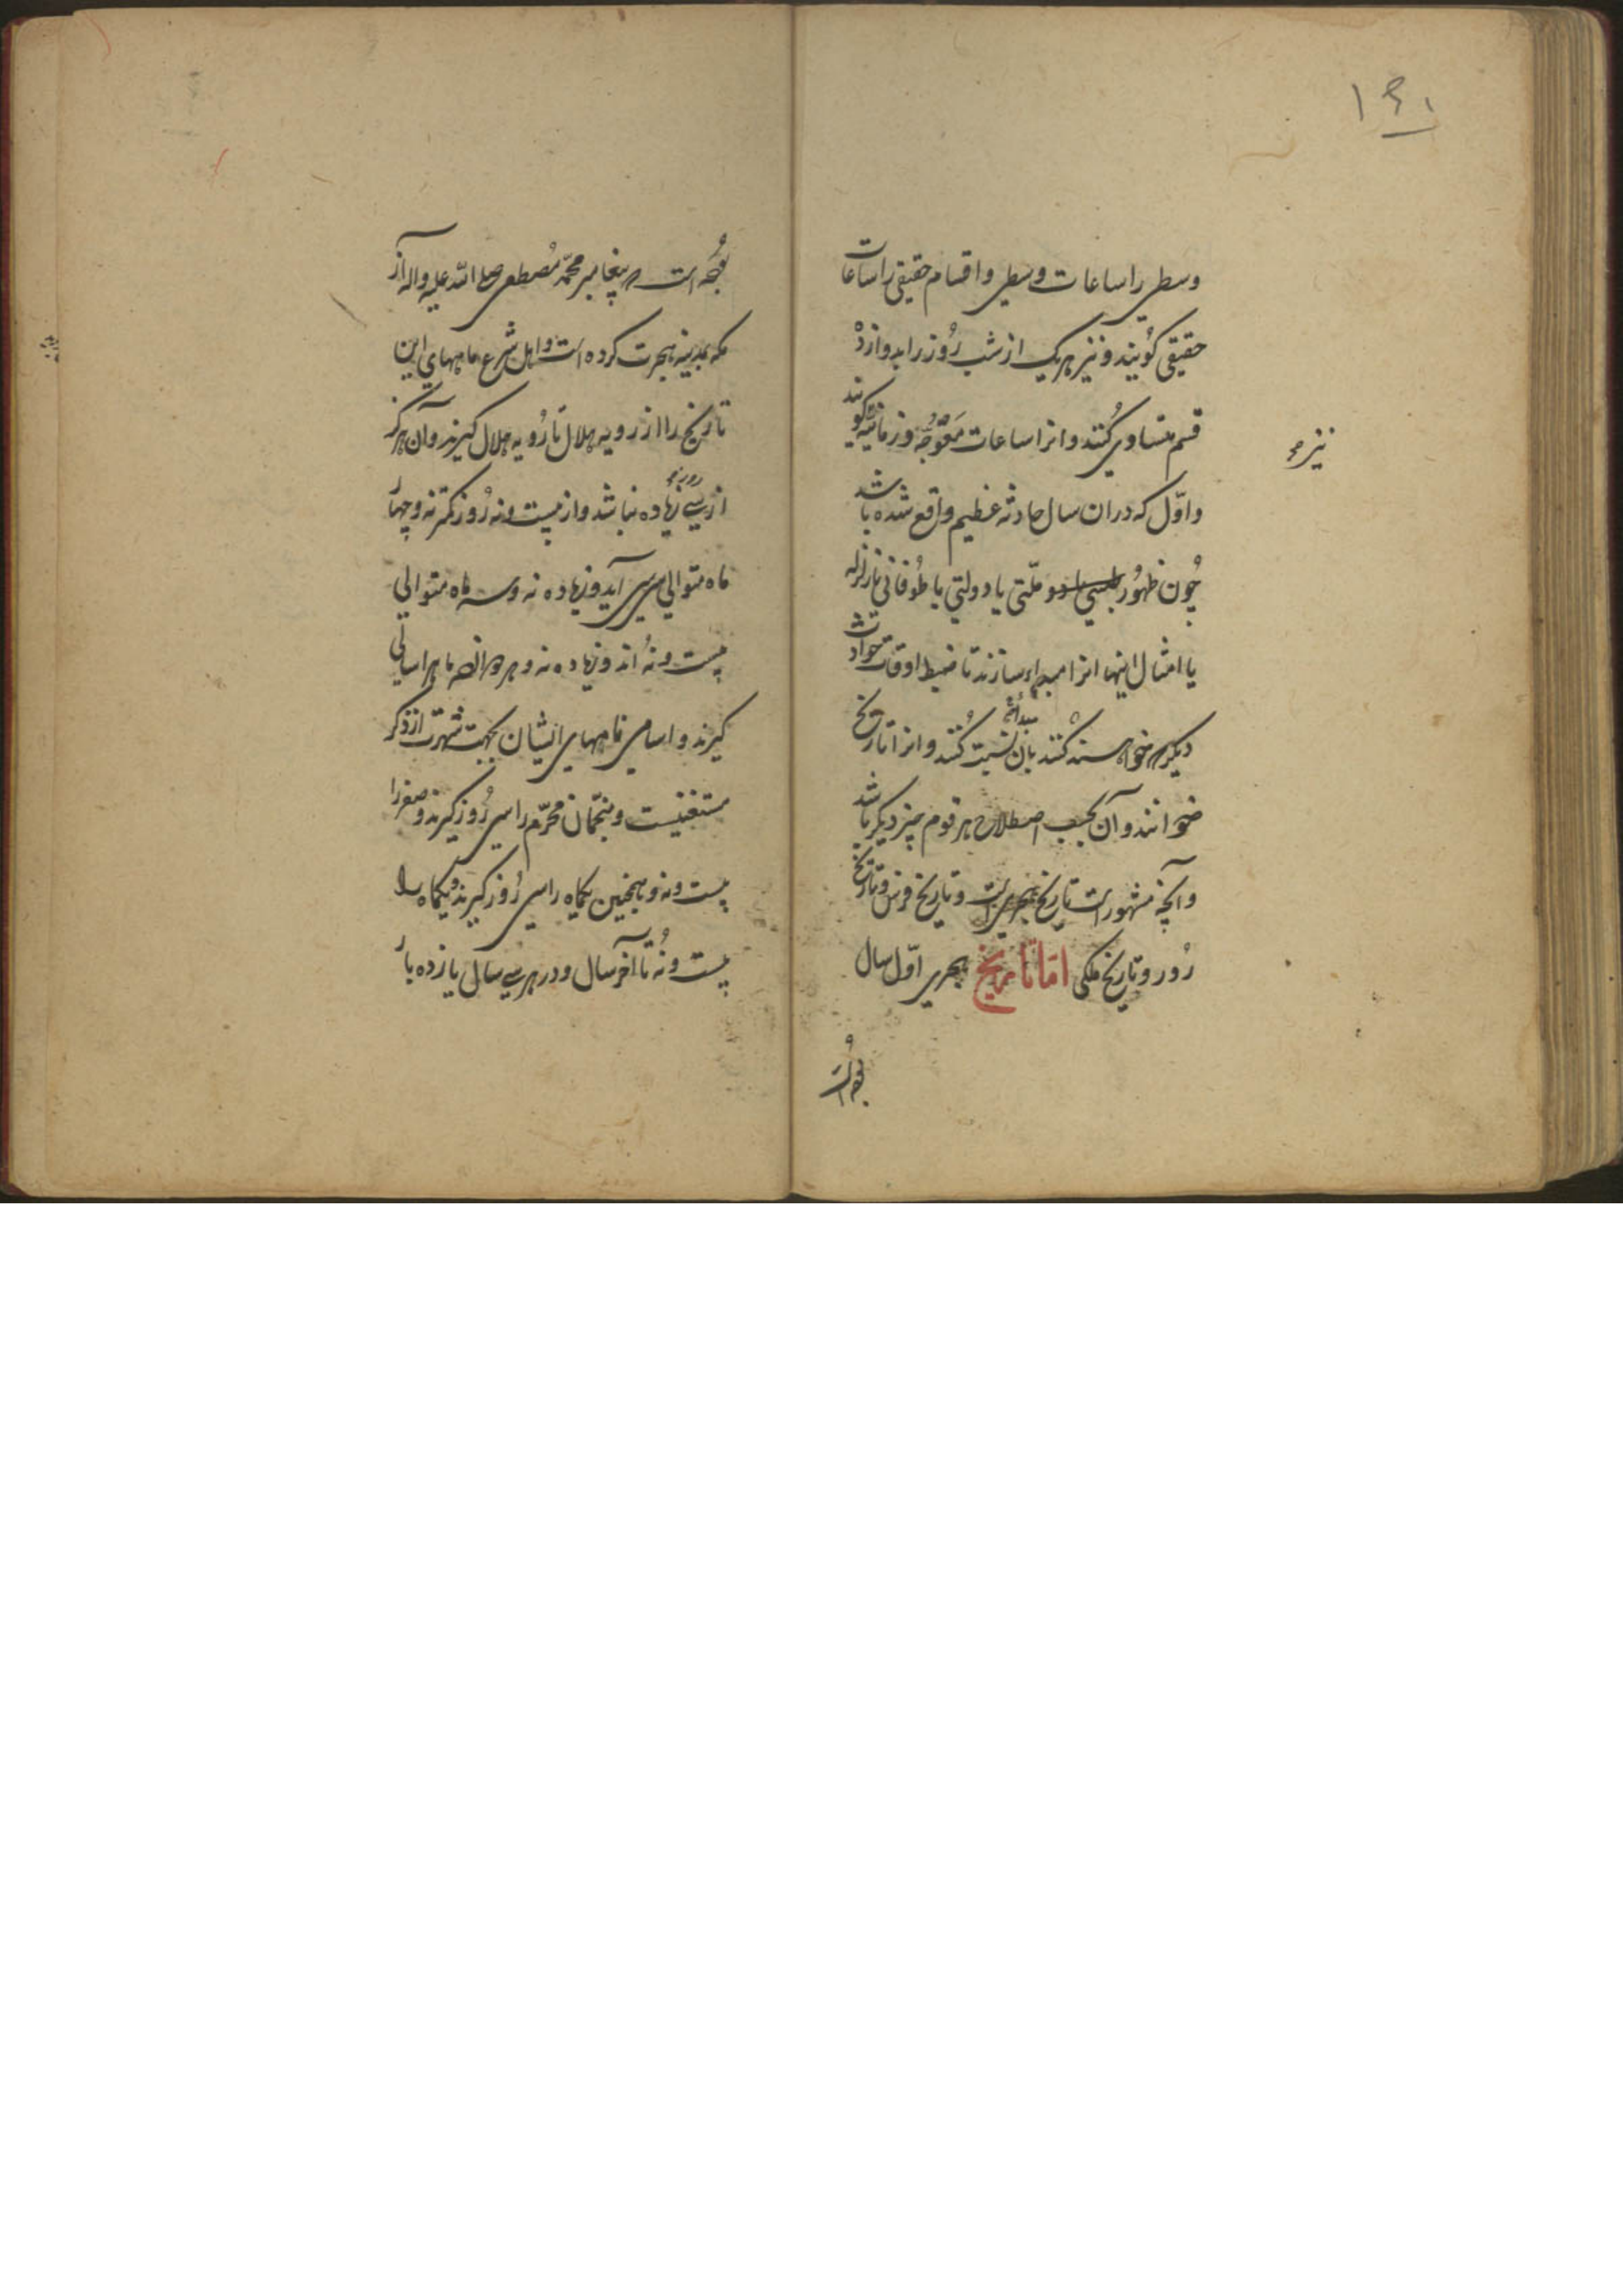 ۱۴۱
وسطی را ساعات وسطی و اقسام حقیقی را ساعات
حقیقی کویند و نیز هریک از شب و روز را بدوازده
قسم متساوی کنند و انرا ساعات معوجه و زمانیه کویند
نیز
و اول که دران سال حادثه عظیم واقع شده باشد
چون ظهور ملتی یا دولتی یا طوفانی یا زلزله
یا امثال اینها انرا مبداء سازند تا ضبط اوقات حوادث
دیکر خواهند کنند بان نسبت کنند و انرا تاریخ
خوانند و آن بحسب اصطلاح هر قوم چیز دیکر باشد
و آنچه مشهور است تاریخ هجری است و تاریخ فرس و تاریخ
روم و تاریخ ملکی اما تاریخ هجری اول سال
بوده است
بوده است که پیغامبر محمد مصطفی صلی الله علیه واله از
مکه بمدینه هجرت کرده است و اهل شرع ماههای این
تاریخ را از رویه هلال تا رویه هلال کیرند و آن هرکز
از سی روز زیاده نباشد و از بیست و نه روز کمتر نه و چهار
ماه متوالی سی سی آید و زیاده نه و سه ماه متوالی
بیست و نه اند و زیاده نه و هر دوازده ماه را سالی
کیرند و اسامی ماههای ایشان بجهت شهرت از ذکر
مستغنیست و منجمان محرم را سی روز کیرند و صفر را
بیست و نه و همچنین یکماه را سی روز کیرند و یکماه را
بیست و نه تا آخر سال و در هر سی سال یازده بار